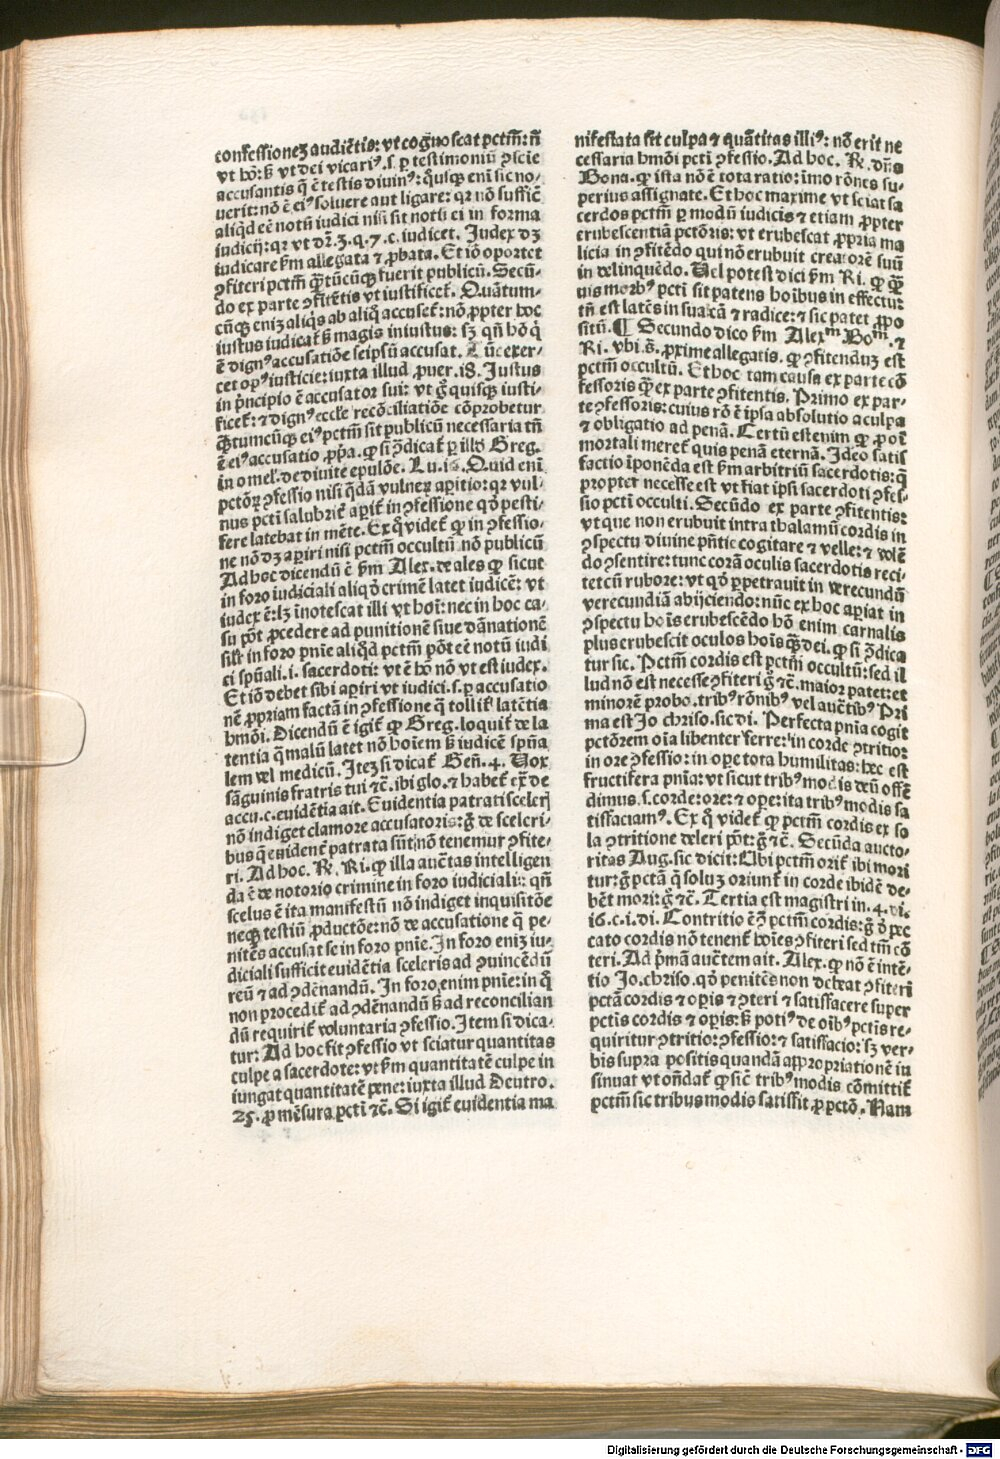 confessionez audiẽtis: vt cog̃noscat pctm̃: ñ
vt hõ: ß vt dei vicariꝰ. s. ꝑ testimoniũ ꝯscie
accusantis q̃ ẽ testis diuinꝰ: qᷓuisqꝫ eni sic no-
uerit: nõ ẽ eiꝰ soluere aut ligare: qꝛ nõ suffic̃
aliqd eẽ notũ iudici nisi sit notũ ei in forma
iudicij: qꝛ vt dꝛ̃. 3. q. 7. c. iudicet. Judex dꝫ
iudicare ẞm allegata ⁊ ꝓbata. Et iõ oportet
ꝯfiteri pctm̃ qᷓ̃tũcũqꝫ fuerit publicũ. Secũ-
do ex parte ꝯfitẽtis vt iustificet̃. Quãtum-
cũqꝫ eniꝫ aliqs ab aliq̃ accuset̃: nõ ꝓpter hoc
iustus iudicat̃ ß magis iniustus: sꝫ qñ hõ q̃
ẽ dignꝰ accusatiõe seipsũ accusat. Tũc exer-
cet opꝰ iusticie: iuxta illud ꝓuer. 18. Justus
in pꝛincipio ẽ accusator sui: vt g̃ quisqꝫ iusti-
ficet̃: ⁊ dignꝰ eccl̃e recõciliatiõe cõprobetur
qᷓ̃tumcũqꝫ eiꝰ pctm̃ sit publicũ necessaria tñ
ẽ eiꝰ accusatio ꝓpꝛia. ꝙ si ꝯ̃dicat̃ ꝑ illð Greg.
in omel'. de diuite epulõe. Lu. 16. Quid eni
pctõꝝ ꝯfessio nisi q̃dã vulneꝝ apitio: qꝛ vul-
nus pcti salubrit̃ apit̃ in ꝯfessione qð pesti-
fere latebat in mẽte. Ex q̃ videt̃ ꝙ in ꝯfessio-
ne nõ dꝫ aꝑiri nisi pctm̃ occultũ nõ publicũ
Ad hoc dicendũ ẽ ẞm Alex. de ales ꝙ sicut
in foro iudiciali aliqð crimẽ latet iudicẽ: vt
iudex ẽ: lꝫ inotescat illi vt hoi: nec in hoc ca-
su põt ꝓcedere ad punitionẽ siue dãnationẽ
sil̃r in foro pnĩe aliqd pctm̃ põt eẽ notũ iudi
ci spũali. i. sacerdoti: vt ẽ hõ nõ vt est iudex.
Et iõ debet sibi aꝑiri vt iudici. s. ꝑ accusatio
nẽ ꝓpriam factã in ꝯfessione q̃ tollit̃ latẽtia
hmõi. Dicendũ ẽ igit̃ ꝙ Greg. loquit̃ de la
tentia q̃ malũ latet nõ hoiem ß iudicẽ spũa
lem vel medicũ. Iteꝫ si dicat̃ Geñ. 4. Vox
sãguinis fratris tui ⁊c̃. ibi glo. ⁊ habet̃ ex̃ de
accu. c. euidẽtia ait. Euidentia patrati sceler̃
nõ indiget clamore accusatoris: g̃ de sceleri-
bus q̃ euident̃ patrata sũt nõ tenemur ꝯfite-
ri. Ad hoc. R̃. Ri. ꝙ illa auc̃tas intelligen
da ẽ de notorio crimine in foro iudiciali: qñ
scelus ẽ ita manifestũ nõ indiget inquisitiõe
neqꝫ testiũ ꝓductõe: nõ de accusatione q̃ pe-
nitẽs accusat se in foro pnĩe. In foro eniꝫ iu-
diciali sufficit euidẽtia sceleris ad ꝯuincẽdũ
reũ ⁊ ad ꝯdẽnandũ. In foro enim pnĩe: in q̃
non procedit̃ ad ꝯdẽnandũ ß ad reconcilian
dũ requirit̃ voluntaria ꝯfessio. Item si dica-
tur: Ad hoc fit ꝯfessio vt sciatur quantitas
culpe a sacerdote: vt ẞm quantitatẽ culpe in
iungat quantitatẽ pene: iuxta illud Deutro.
25. ꝓ mẽsura pcti ⁊c̃. Si igit̃ euidentia ma
nifestata sit culpa ⁊ quãtitas illiꝰ: nõ erit ne
cessaria hmõi pcti ꝯfessio. Ad hoc. R̃. dñs
Bona. ꝙ ista nõ ẽ tota ratio: imo rõnes su-
perius assignate. Et hoc maxime vt sciat sa
cerdos pctm̃ ꝑ modũ iudicis ⁊ etiam ꝓpter
erubescentiã pctõris: vt erubescat ꝓpria ma
licia in ꝯfitẽdo qui nõ erubuit creatorẽ suũ
in delinquẽdo. Vel potest dici ẞm Ri. ꝙ qᷓ̃
uis morbꝰ pcti sit patens hoibus in effectu:
tñ est latẽs in sua cã ⁊ radice: ⁊ sic patet ꝓpo
sitũ. ¶ Secundo dico ẞm Alexᵐ Boᵐ. ⁊
Ri. vbi s̃. ꝓxime allegatis. ꝙ ꝯfitenduꝫ est
pctm̃ occultũ. Et hoc tam causa ex parte cõ
fessoris qᷓ̃ ex parte ꝯfitentis. Primo ex par-
te ꝯfessoris: cuius rõ ẽ ipsa absolutio a culpa
⁊ obligatio ad penã. Certũ est enim ꝙ ꝓ oi
mortali meret̃ quis penã eternã. Ideo satis
factio iponẽda est ẞm arbitriũ sacerdotis: q̃
propter necesse est vt fiat ipsi sacerdoti ꝯfes-
sio pcti occulti. Secũdo ex parte ꝯfitentis:
vt que non erubuit intra thalamũ cordis in
ꝯspectu diuine pñtie cogitare ⁊ velle: ⁊ volẽ
do ꝯsentire: tunc corã oculis sacerdotis reci-
tet cũ rubore: vt qð ꝑpetrauit in verecundũ
verecundiã abijciendo: nũc ex hoc aꝑiat in
ꝯspectu hois erubescẽdo hõ enim carnalis
plus erubescit oculos hois qᷓ̃ dei. ꝙ si ꝯ̃dica
tur sic. Pctm̃ cordis est pctm̃ occultũ: sed il
lud nõ est necesse ꝯfiteri g̃ ⁊c̃. maior patet: et
minorẽ probo. tribꝰ rõnibꝰ vel auc̃tibꝰ Pri
ma est Jo chriso. sic di. Perfecta pnĩa cogit
pctõrem oĩa libenter ferre: in corde ꝯtritio:
in ore ꝯfessio: in oꝑe tota humilitas: hec est
fructifera pnĩa: vt sicut tribꝰ modis deũ offẽ
dimus. s. corde: ore: ⁊ oꝑe: ita tribꝰ modis sa
tisfaciamꝰ. Ex q̃ videt̃ ꝙ pctm̃ cordis ex so
la ꝯtritione deleri põt: g̃ ⁊c̃. Secũda aucto-
ritas Aug. sic dicit: Vbi pctm̃ orit̃ ibi mori
tur: g̃ pctã q̃ soluꝫ oriunt̃ in corde ibidẽ de-
bẽt mori: g̃ ⁊c̃. Tertia est magistri in. 4. di.
16. c. i. di. Contritio ẽ ꝯ̃ pctm̃ cordis: g̃ ð pec
cato cordis nõ tenent̃ hoies ꝯfiteri sed tm̃ cõ
teri. Ad pꝛimã auc̃tem ait. Alex. ꝙ nõ ẽ intẽ-
tio Jo. chriso. qð penitẽs non debeat ꝯfiteri
pctã cordis ⁊ oꝑis ⁊ ꝯteri ⁊ satisfacere super
pctis cordis ⁊ oꝑis: ß potiꝰ de oibꝰ pctis re-
quiritur ꝯtritio: ꝯfessio: ⁊ satisfacio: sꝫ ver-
bis supra positis quandã appropriationẽ in
sinuat vt oñdat̃ ꝙ sic̃ tribꝰ modis cõmittit̃
pctm̃ sic tribus modis satisfit ꝓ pctõ. Nam
Digitalisierung gefördert durch die Deutsche Forschungsgemeinschaft - DFG